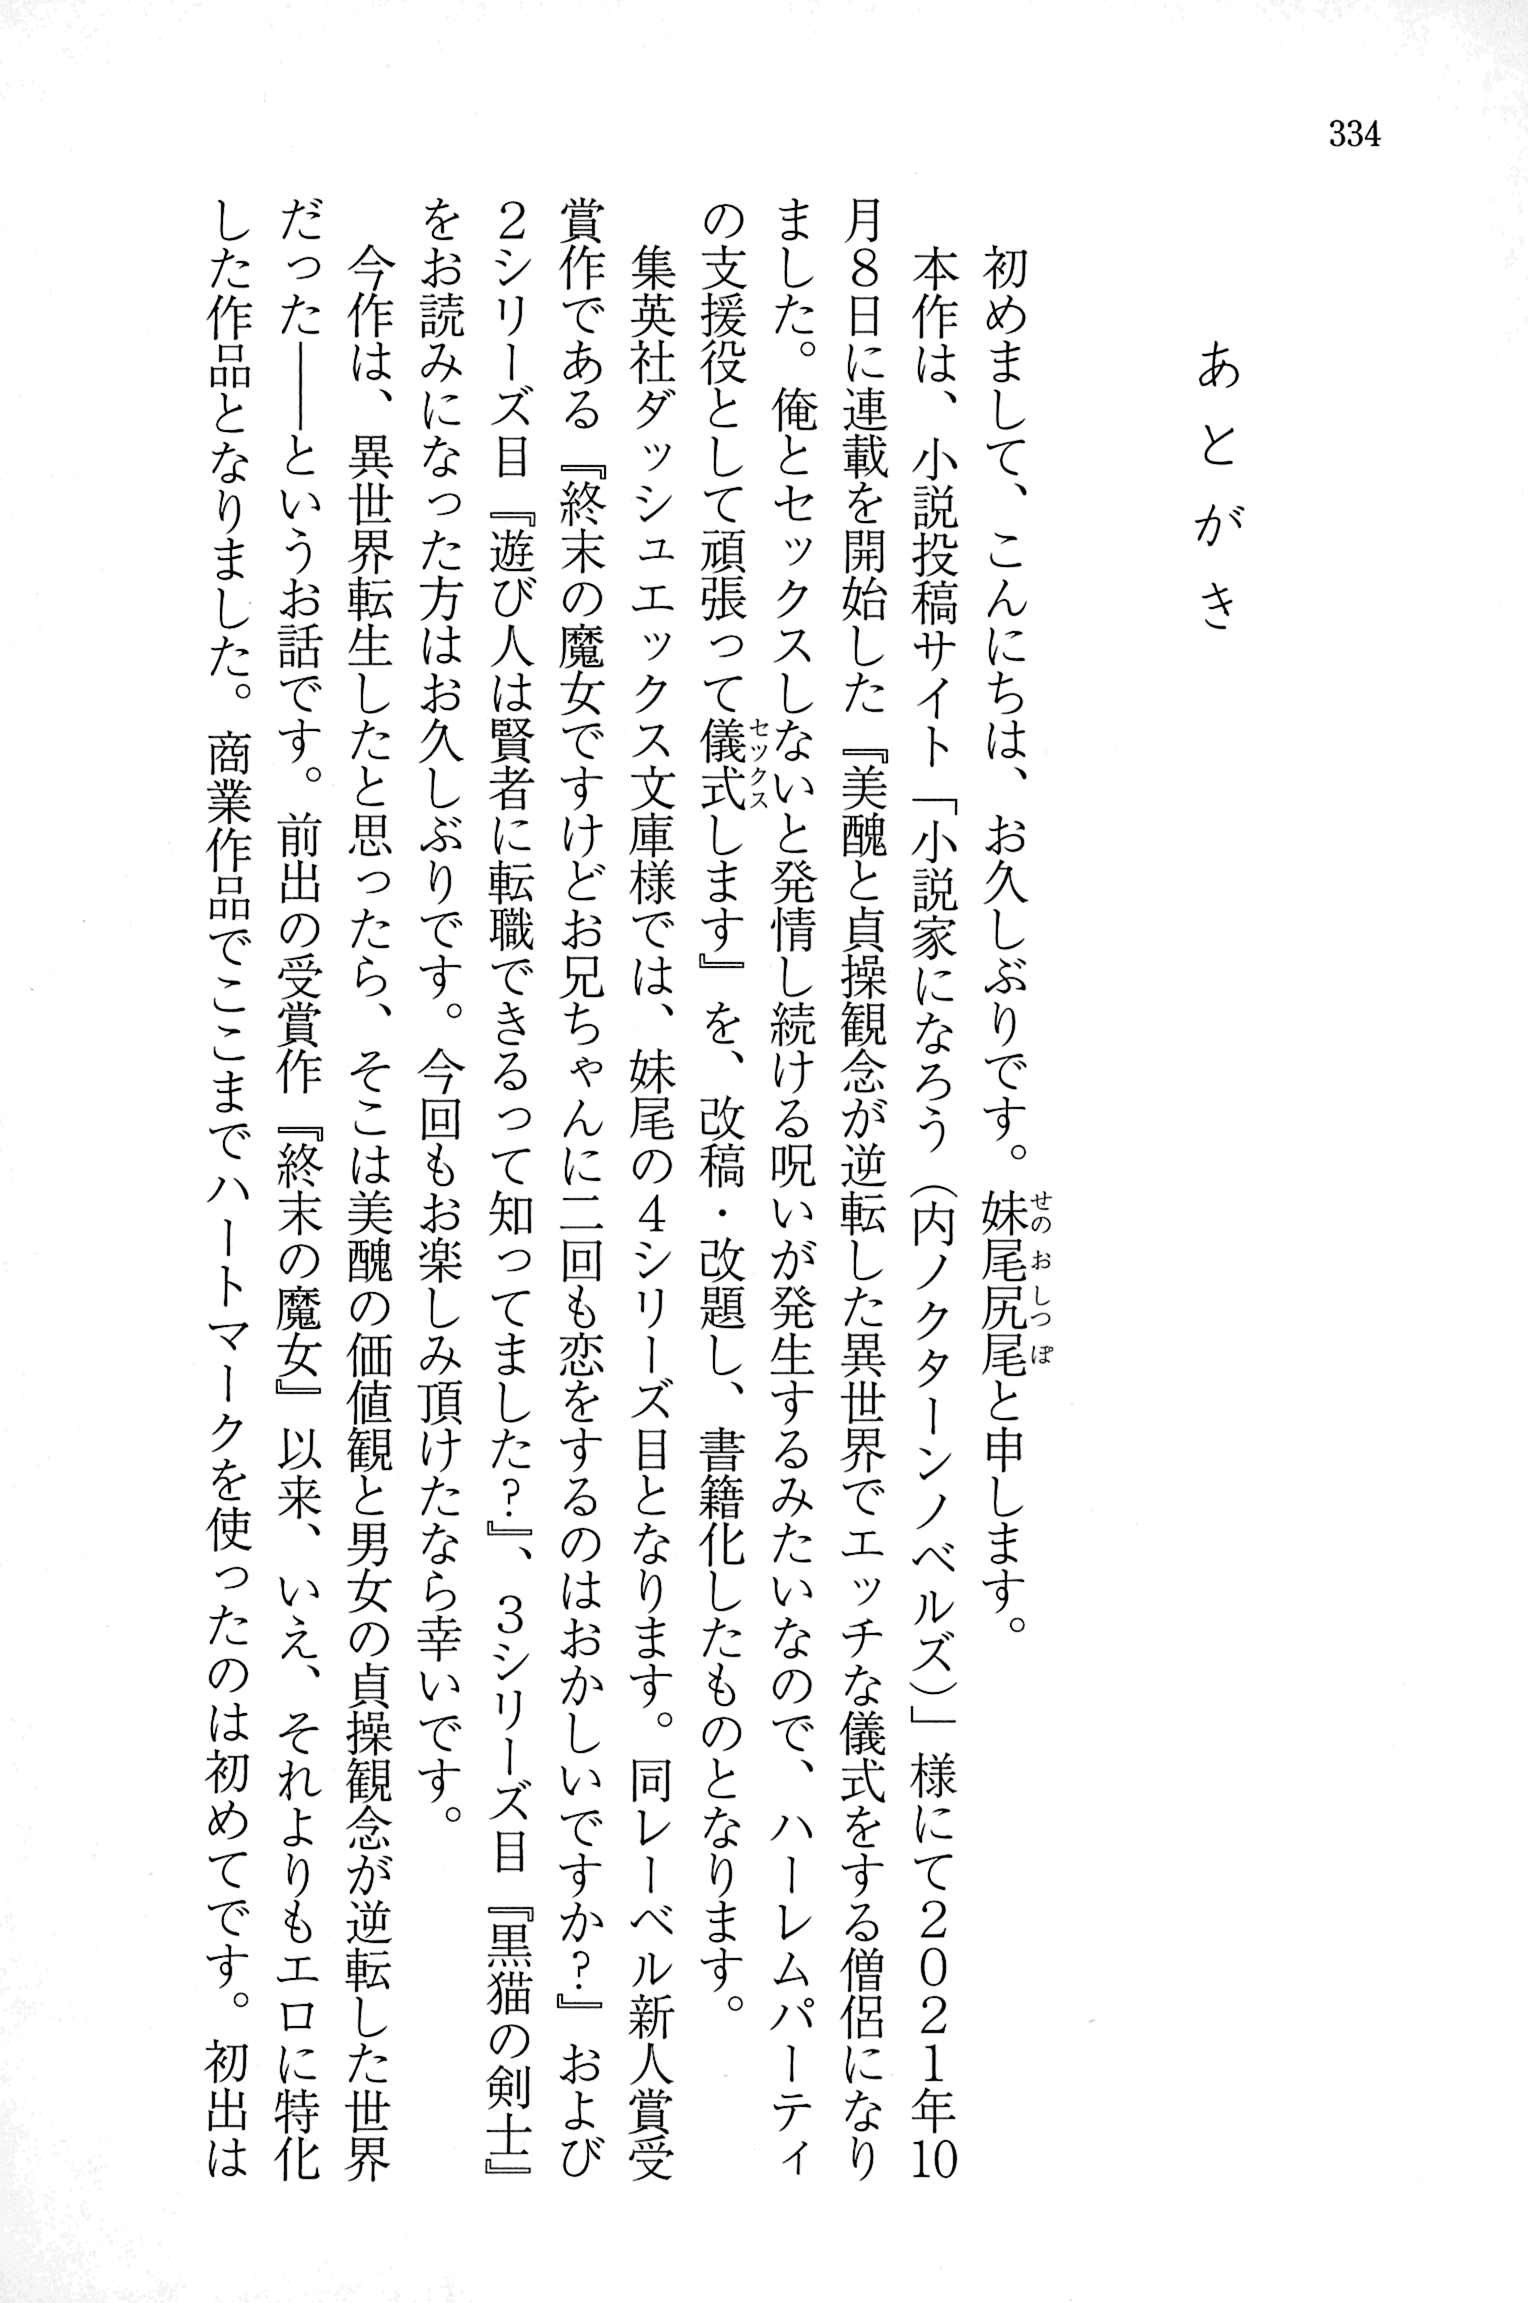 334
あとがき
初めまして、こんにちは、お久しぶりです。妹尾尻尾と申します。
せのおしっぽ
本作は、小説投稿サイト「小説家になろう（内ノクターンノベルズ）」様にて２０２１年10
月８日に連載を開始した『美醜と貞操観念が逆転した異世界でエッチな儀式をする僧侶になり
ました。俺とセックスしないと発情し続ける呪いが発生するみたいなので、ハーレムパーティ
の支援役として頑張って儀式します』を、改稿・改題し、書籍化したものとなります。
セックス
集英社ダッシュエックス文庫様では、妹尾の４シリーズ目となります。同レーベル新人賞受
賞作である『終末の魔女ですけどお兄ちゃんに二回も恋をするのはおかしいですか？』および
２シリーズ目『遊び人は賢者に転職できるって知ってました？』、３シリーズ目『黒猫の剣士』
をお読みになった方はお久しぶりです。今回もお楽しみ頂けたなら幸いです。
今作は、異世界転生したと思ったら、そこは美醜の価値観と男女の貞操観念が逆転した世界
だった――というお話です。前出の受賞作『終末の魔女』以来、いえ、それよりもエロに特化
した作品となりました。商業作品でここまでハートマークを使ったのは初めてです。初出は